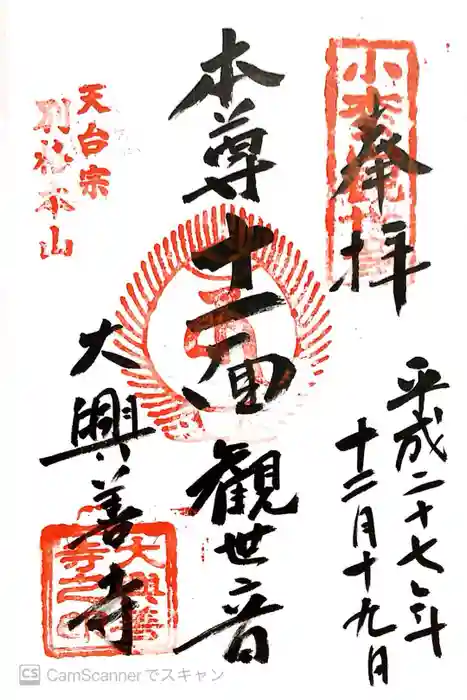 奉拝
平成二十七年
十二月十九日
本尊
十一面
觀世音
大興善寺
天台宗
別格本山
大興善
寺之印
CS CamScannerでスキャン